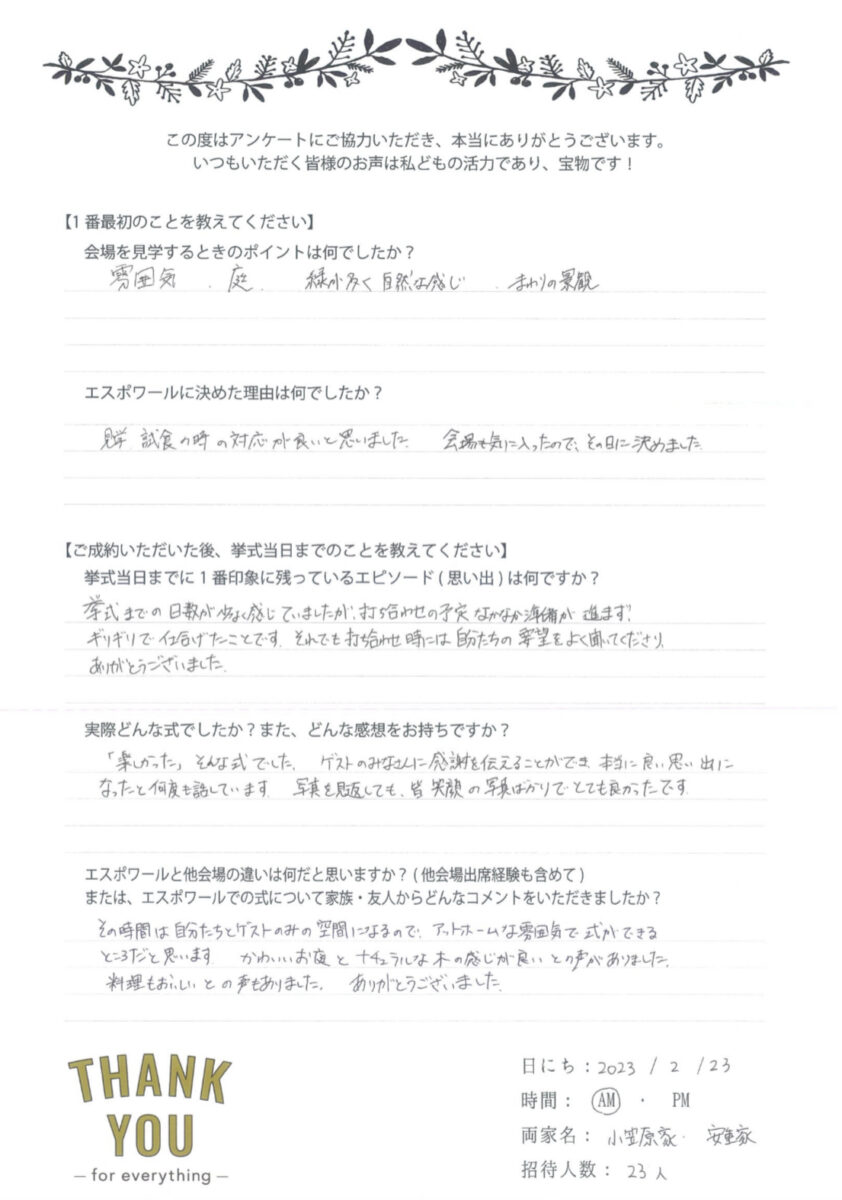 この度はアンケートにご協力いただき、本当にありがとうございます。
いつもいただく皆様のお声は私どもの活力であり、宝物です！
【1番最初のことを教えてください】
会場を見学するときのポイントは何でしたか？
雰囲気 . 庭. 緑が多く自然な感じ . まわりの景観
エスポワールに決めた理由は何でしたか？
見学 試食の時の対応が良いと思いました. 会場も気に入ったので、その日に決めました.
【ご成約いただいた後、挙式当日までのことを教えてください】
挙式当日までに1番印象に残っているエピソード(思い出)は何ですか？
挙式までの日数が少なく感じていましたが、打ち合わせの予定 なかなか準備が進まず、
ギリギリで仕上げたことです. それでも打ち合わせ時には自分たちの要望をよく聞いてくださり、
ありがとうございました.
実際どんな式でしたか？また、どんな感想をお持ちですか？
「楽しかった」そんな式でした. ゲストのみなさんに感謝を伝えることができ、本当に良い思い出に
なったと何度も話しています. 写真を見返しても、皆笑顔の写真ばかりでとても良かったです.
エスポワールと他会場の違いは何だと思いますか？(他会場出席経験も含めて)
または、エスポワールでの式について家族・友人からどんなコメントをいただきましたか？
その時間は自分たちとゲストのみの空間になるので、アットホームな雰囲気で式ができる
ところだと思います. かわいいお庭とナチュラルな木の感じが良いとの声がありました.
料理もおいしいとの声もありました. ありがとうございました.
THANK
YOU
– for everything –
日にち：2023 / 2 / 23
時間： AM ・ PM
両家名： 小笠原家・ 安重家
招待人数： 23人